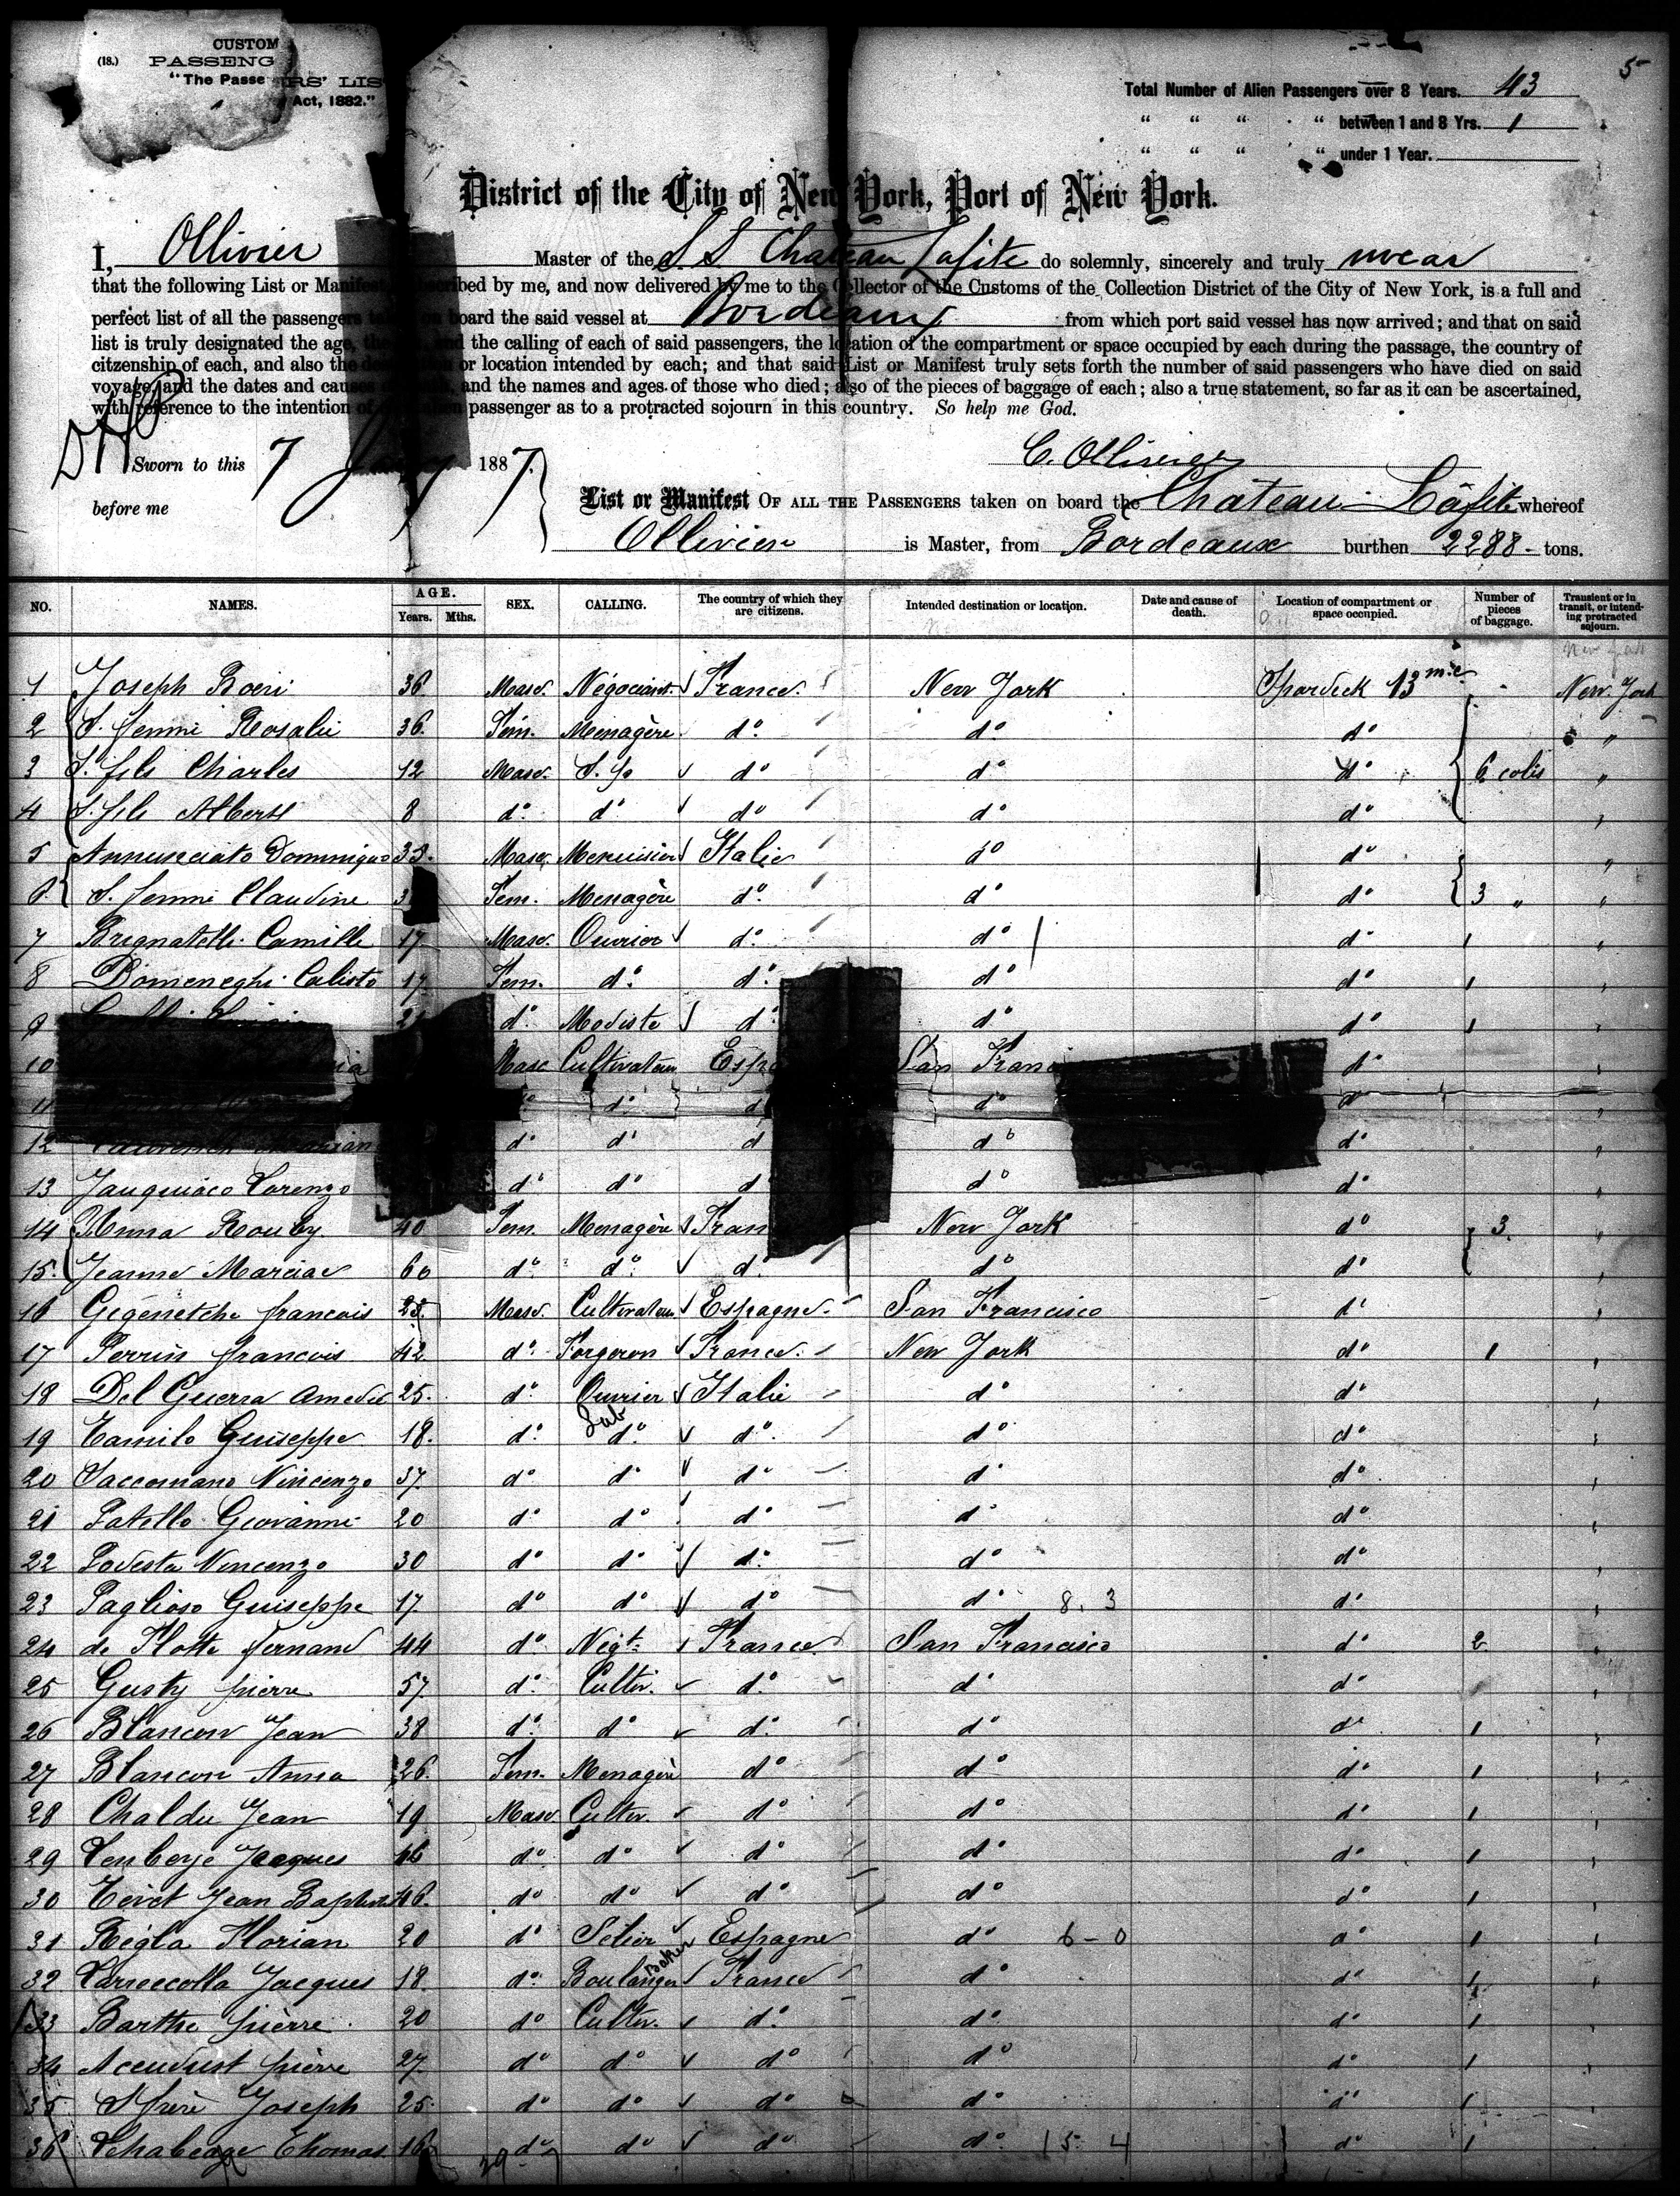 (18.)
CUSTOM
PASSENG
"The Passe
RS' LIS
Act, 1882."
5
Total Number of Alien Passengers over 8 Years. 43
" " " " between 1 and 8 Yrs. 1
" " " " under 1 Year.
District of the City of New York, Port of New York.
I, Ollivier Master of the S. S Chateau Lafite do solemnly, sincerely and truly swear
that the following List or Manifest scribed by me, and now delivered by me to the Collector of the Customs of the Collection District of the City of New York, is a full and
perfect list of all the passengers on board the said vessel at Bordeaux from which port said vessel has now arrived; and that on said
list is truly designated the age, the and the calling of each of said passengers, the location of the compartment or space occupied by each during the passage, the country of
citzenship of each, and also the or location intended by each; and that said List or Manifest truly sets forth the number of said passengers who have died on said
voyage, and the dates and causes and the names and ages of those who died; also of the pieces of baggage of each; also a true statement, so far as it can be ascertained,
with reference to the intention of passenger as to a protracted sojourn in this country. So help me God.
Sworn to this 7 1887. C. Ollivier
before me
List or Manifest OF ALL THE PASSENGERS taken on board the Château Lafite whereof
Ollivier is Master, from Bordeaux burthen 2288 - tons.
NO. NAMES. AGE. Years. Mths. SEX. CALLING. The country of which they are citizens. Intended destination or location. Date and cause of death. Location of compartment or space occupied. Number of pieces of baggage. Transient or in transit, or intending protracted sojourn.
1 Joseph Boeri 36 Masc. Négociant France. New York New York
2 S. femme Rosalie 36. Fém. Menagère do. do do "
3 S. fils Charles 12 Masc. S. p do do do 6 colis "
4 S. fils Albert 8 do. do do do do "
5 Annunciato Dominique Masc. Menuisier Italie do do "
6 S. femme Claudine Fem. Menagère do. do do 3 " "
7 Brignatelli Camille 17 Masc. Ouvrier do. do do 1 "
8 Domeneghi Calisto 17 Fem. do. do. do do 1 "
9 do. Modiste do do do 1 "
10 Masc Cultivateur Espa San Franc do "
11 do do "
12 do do d do do. "
13 Lorenzo do do d do do. "
14 Anna Rouby 40 Fem. Menagère Fran New York do 3. "
15. Jeanne Marciac 60 do. do. do. do do "
16 Gigenetche francois Masc. Cultivateur Espagne. San Francisco do
17 Perrin francois 42 do. Forgeron France. New York do 1 "
18 Del Guerra Amedée 25. do. Ouvrier Italie do do "
19 Guiseppe 18. do. Lab do. do. do do "
20 Saccomano Vincenzo 37. do do do do do. "
21 Patello Giovanni 20 do do. do do do "
22 Podesta Vincenzo 30 do do do. do do "
23 Paglioso Guiseppe 17. do do do do 8. 3 do. "
24 de Flotte fernand 44 do Négt. France San Francisco do 2 "
25 Gusty pierre 57 do. Cultiv. do. do do "
26 Blancon Jean 38 do. do do. do do 1 "
27 Blancon Anna 26. Fem. Menagère do do do. 1 "
28 Chaldu Jean 19 Masc. Cultiv. do do do 1 "
29 Jacques do do do do do 1 "
30 Jean Baptiste 46. do do do do do 1 "
31 Régla Florian 20 do Selier Espagne do 6 - 0 do 1 "
32 Jacques 18 do. Boulanger Baker France do do 1 "
33 Barthe pierre. 20 do Cultiv. do. do. do 1 "
34 pierre 27. do do do do do 1 "
35 S frère Joseph 25 do do do do do 1
36 Thomas 16 do do do do. 15 4 do 1